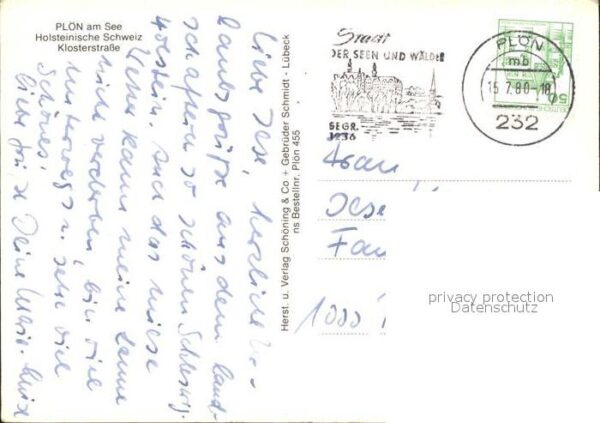 PLÖN am See
Holsteinische Schweiz
Klosterstraße
Liebe Ilse, herzliche Ur-
laubsgrüße aus dem land-
schaftlich so schönen Schleswig-
Holstein. Auch das miese
Wetter kann meine Laune
nicht verderben, bin viel
unterwegs u. sehe viel
Schönes!
Liebe Grüße Deine
Herst. u. Verlag Schöning & Co + Gebrüder Schmidt - Lübeck
ns Bestellnr. Plön 455
Stadt
DER SEEN UND WÄLDER
SEGR.
1236
PLÖN
mb
15.7.80-18
232
50
Fa
1000
privacy protection
Datenschutz